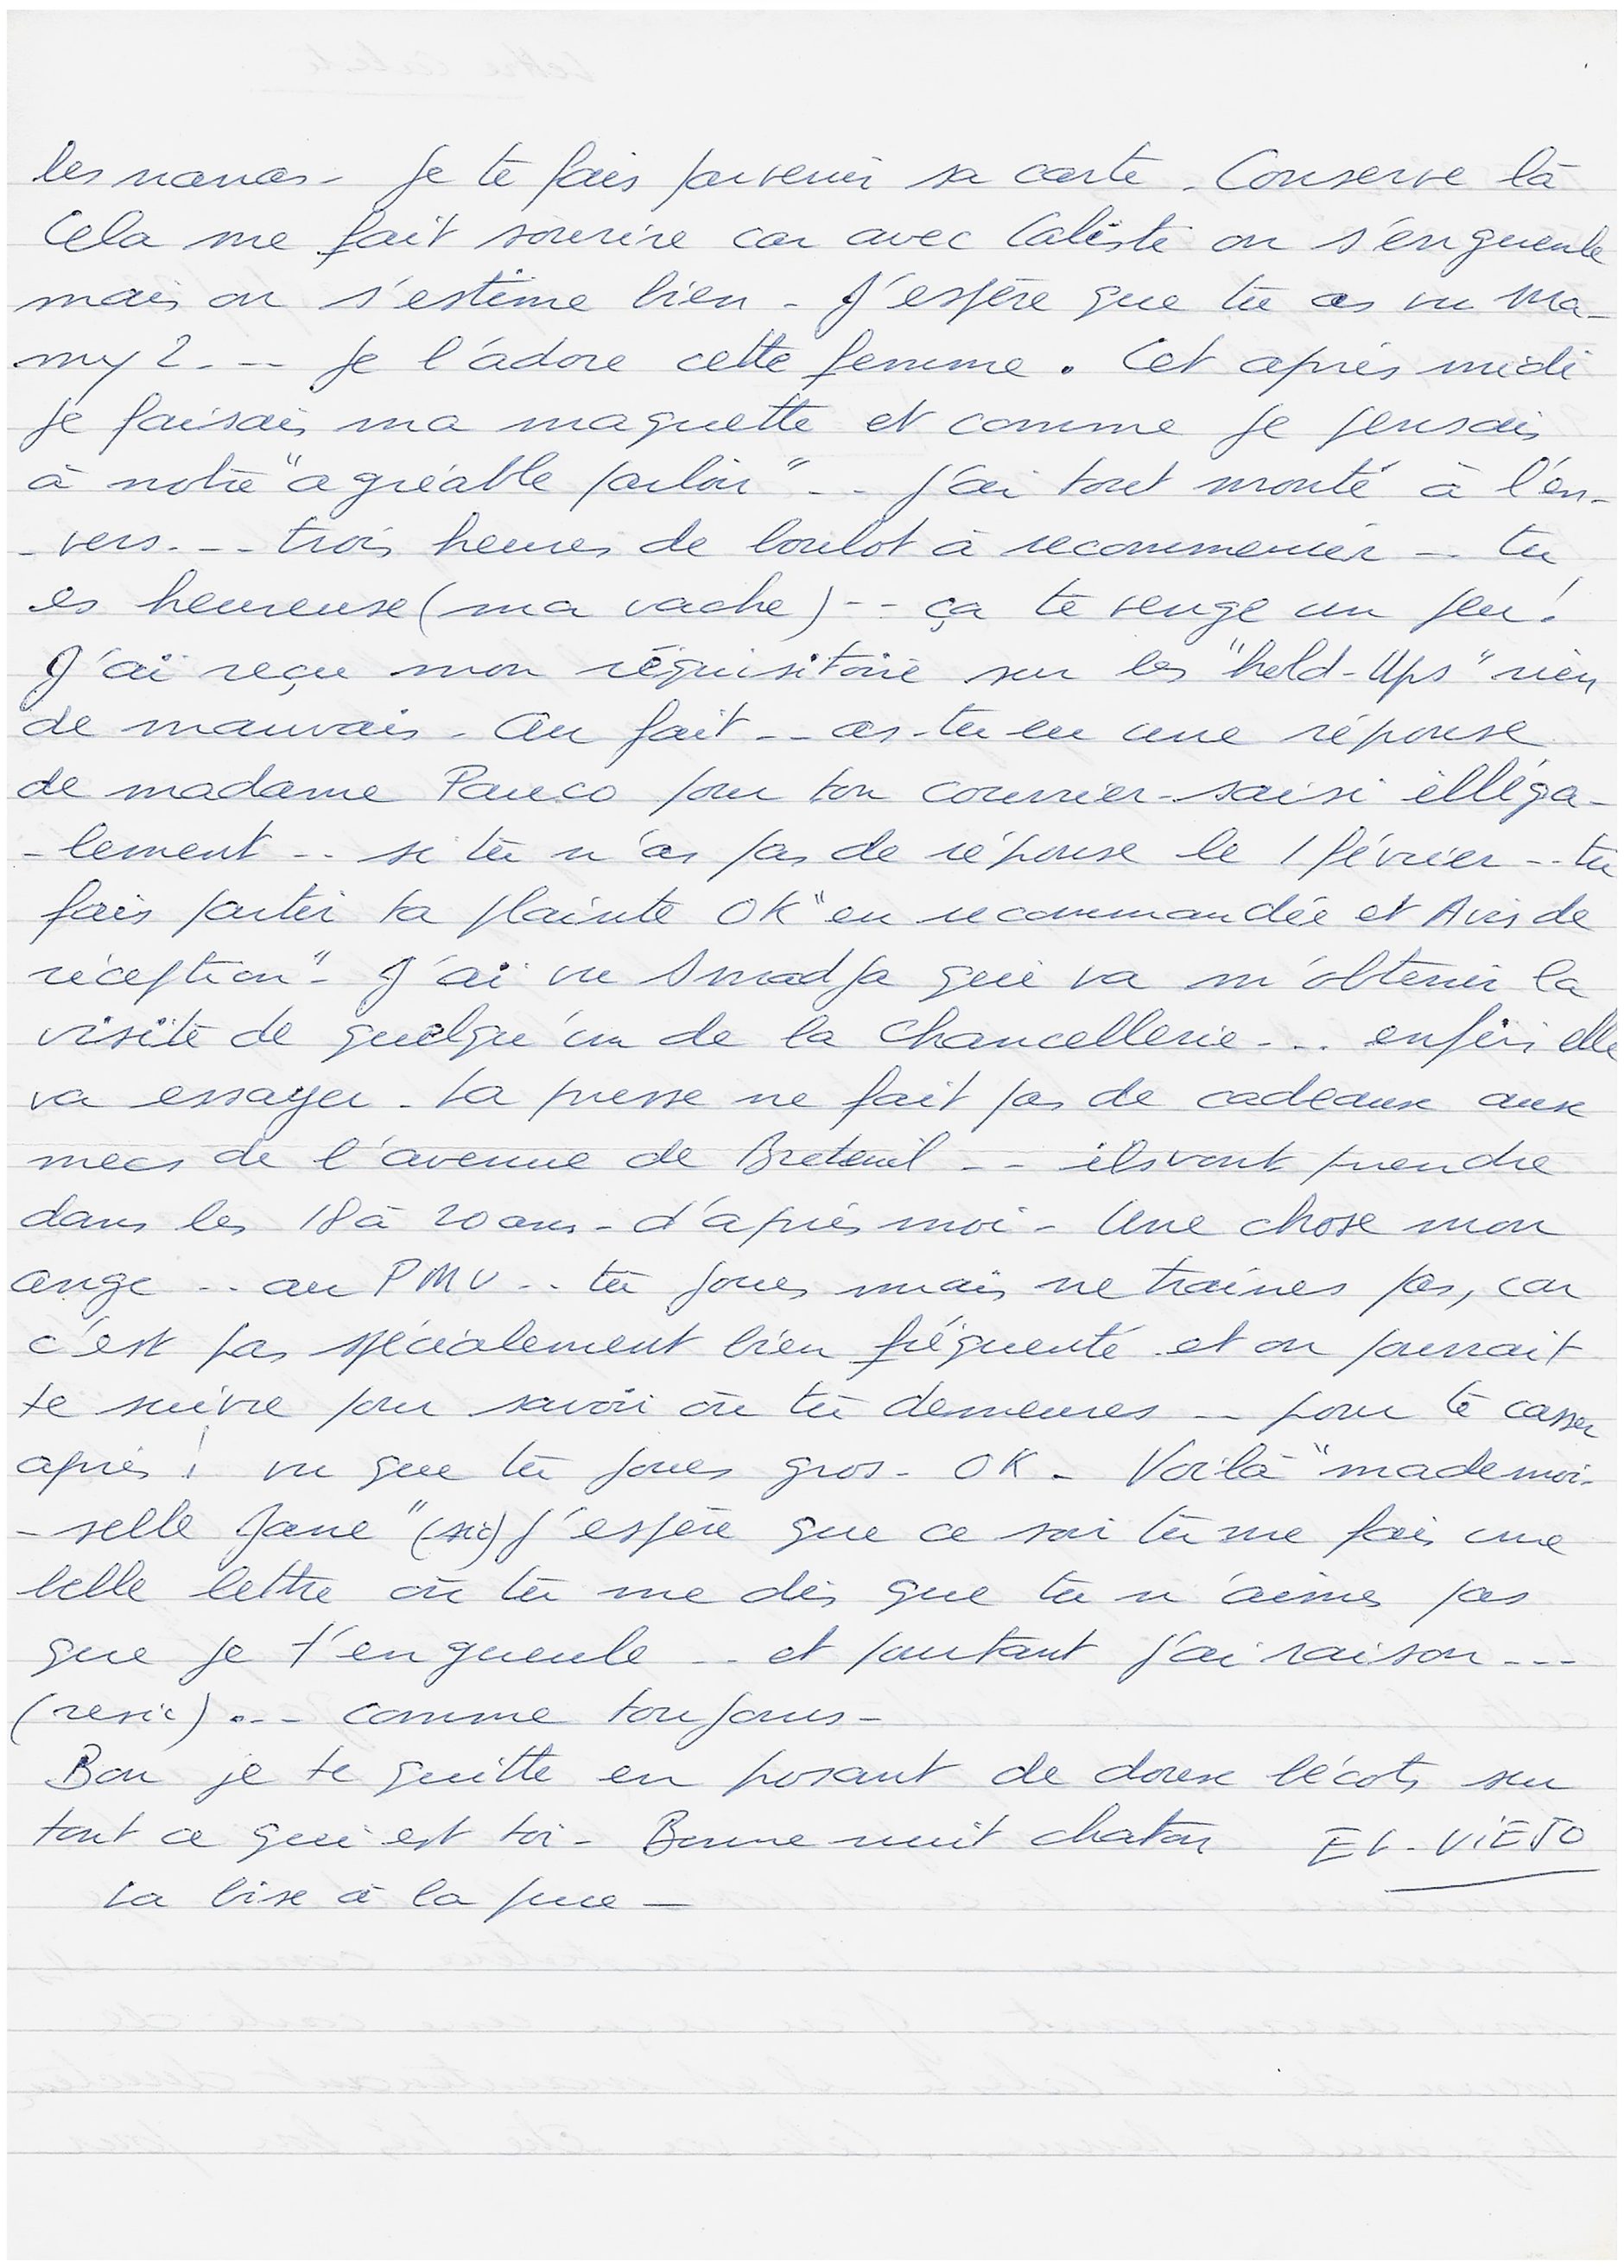 les nanas - Je te fais parvenir sa carte . Conserve là
Cela me fait sourire car avec Caliste on s'engueule
mais on s'estime bien - J'espère que tu as vu Ma-
my ? - - Je l'adore cette femme . Cet après midi
je faisais ma maquette et comme je pensais
à notre "agréable parloir" - - j'ai tout monté à l'en-
- vers. - - trois heures de boulot à recommencer - - tu
es heureuse (ma vache) - - ça te venge un peu !
J'ai reçu mon réquisitoire sur les "hold-Ups" rien
de mauvais - Au fait - - as-tu eu une réponse
de madame Pauco pour ton courrier - saisi illéga-
- lement - - si tu n'as pas de réponse le 1 février - - tu
fais partir ta plainte OK "en recommandée et Avis de
réception" - J'ai vu Smadja qui va m'obtenir la
visite de quelqu'un de la Chancellerie - - . enfin elle
va essayer - La presse ne fait pas de cadeaux aux
mecs de l'avenue de Breteuil - - ils vont prendre
dans les 18 à 20 ans - d'après moi - Une chose mon
ange - - au PMU - - tu joues mais ne traines pas, car
c'est pas spécialement bien fréquenté et on pourrait
te suivre pour savoir où tu demeures - - pour te casser
après ! vu que tu joues gros - OK - Voilà "mademoi-
- selle Jane" (sic) j'espère que ce soir tu me fais une
belle lettre où tu me dis que tu n'aimes pas
que je t'engueule - - et pourtant j'ai raison - - -
(resic) . - - comme toujours -
Bon je te quitte en posant de doux bécots sur
tout ce qui est toi - Bonne nuit chaton EL - ViEJO
La bise à la puce -